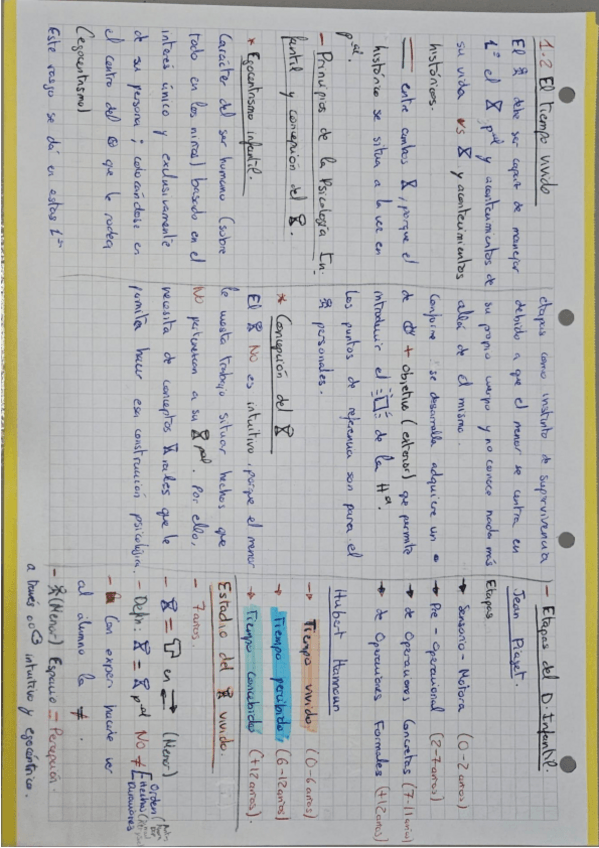 1.2 El tiempo vivido
El debe ser capaz de manejar
1º el pal y acontecimientos de
su vida vs y acontecimientos
históricos.
entre ambos, porque el
histórico se situa a la vez en
pal.
- Principios de la Psicología In-
fantil y concepción del
* Egocentrismo infantil.
Carácter del ser humano (sobre
todo en los niños) basado en el
interés único y exclusivamente
de su persona; colocándose en
el centro del que le rodea
(egocentrismo)
Este rasgo se dá en estas 1as
etapas como instinto de supervivencia
debido a que el menor se centra en
su propio cuerpo y no conoce nada más
allá de él mismo.
Conforme se desarrolla adquiere un
de + objetivo (exterior) que permite
introducir el de la Hª.
Los puntos de referencia son para el
personales.
* Concepción del
El NO es intuitivo, porque al menor
le cuesta trabajo situar hechos que
NO pertenezcan a su pal. Por ello,
necesita de conceptos rales que le
permita hacer esa construcción psicológica.
- Etapas del D. Infantil.
Jean Piaget.
Etapas
→ Sensorio-Motora (0-2 años)
→ Pre-operacional (2-7 años)
→ de Operaciones Concretas (7-11 años)
→ de Operaciones Formales (+12 años)
Hubert Hannoun
→ Tiempo vivido (0-6 años)
→ Tiempo percibido (6-12 años)
→ Tiempo concebido (+12 años)
Estadio del vivido.
- 7 años.
- = en (Menor)
- Defn: = pal NO ≠ [Orden
hecho
- Con exper. hacerle ver
al alumno la ≠.
- (Menor) Espacio = Percepción
a través intuitivo y egocéntrico.